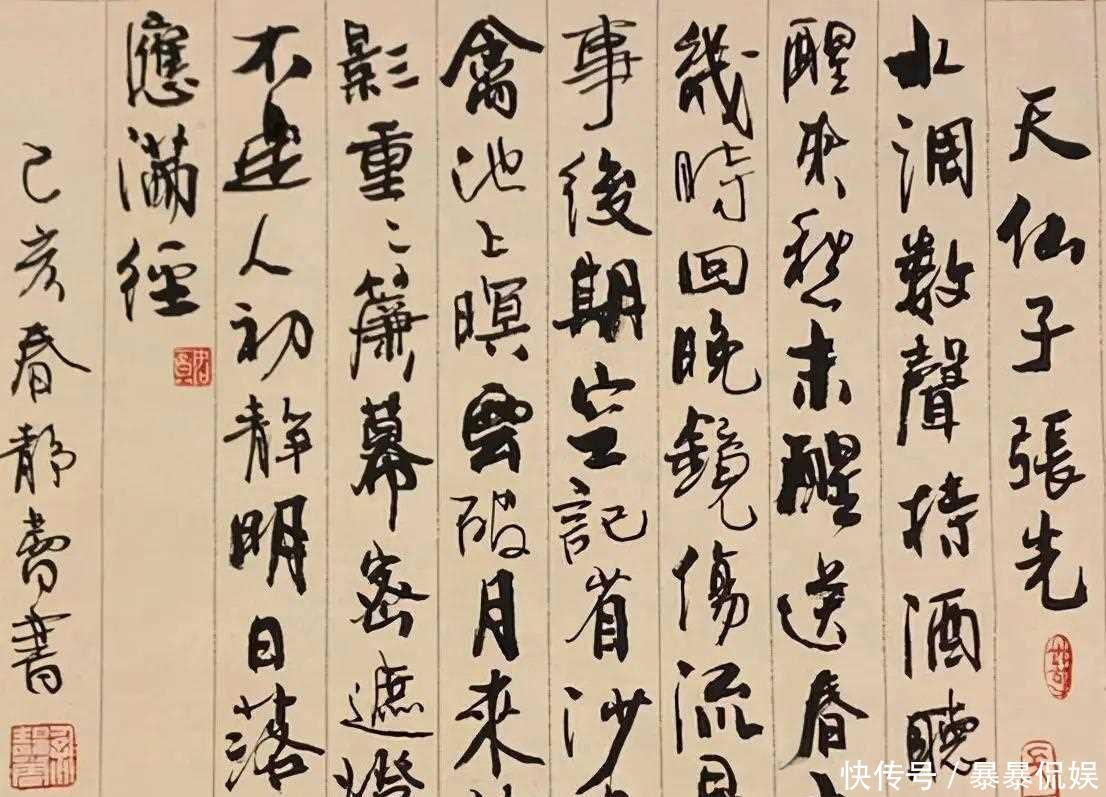 天仙子張先
水調數聲持酒聽
醒來愁未醒送春
幾時回晚鏡傷流
事後期空記省沙
禽池上暝雲破月來
影重〻簾幕密遮燈
不定人初静明日落
應滿經
己亥春靜書
快传号 / 暴暴侃娱